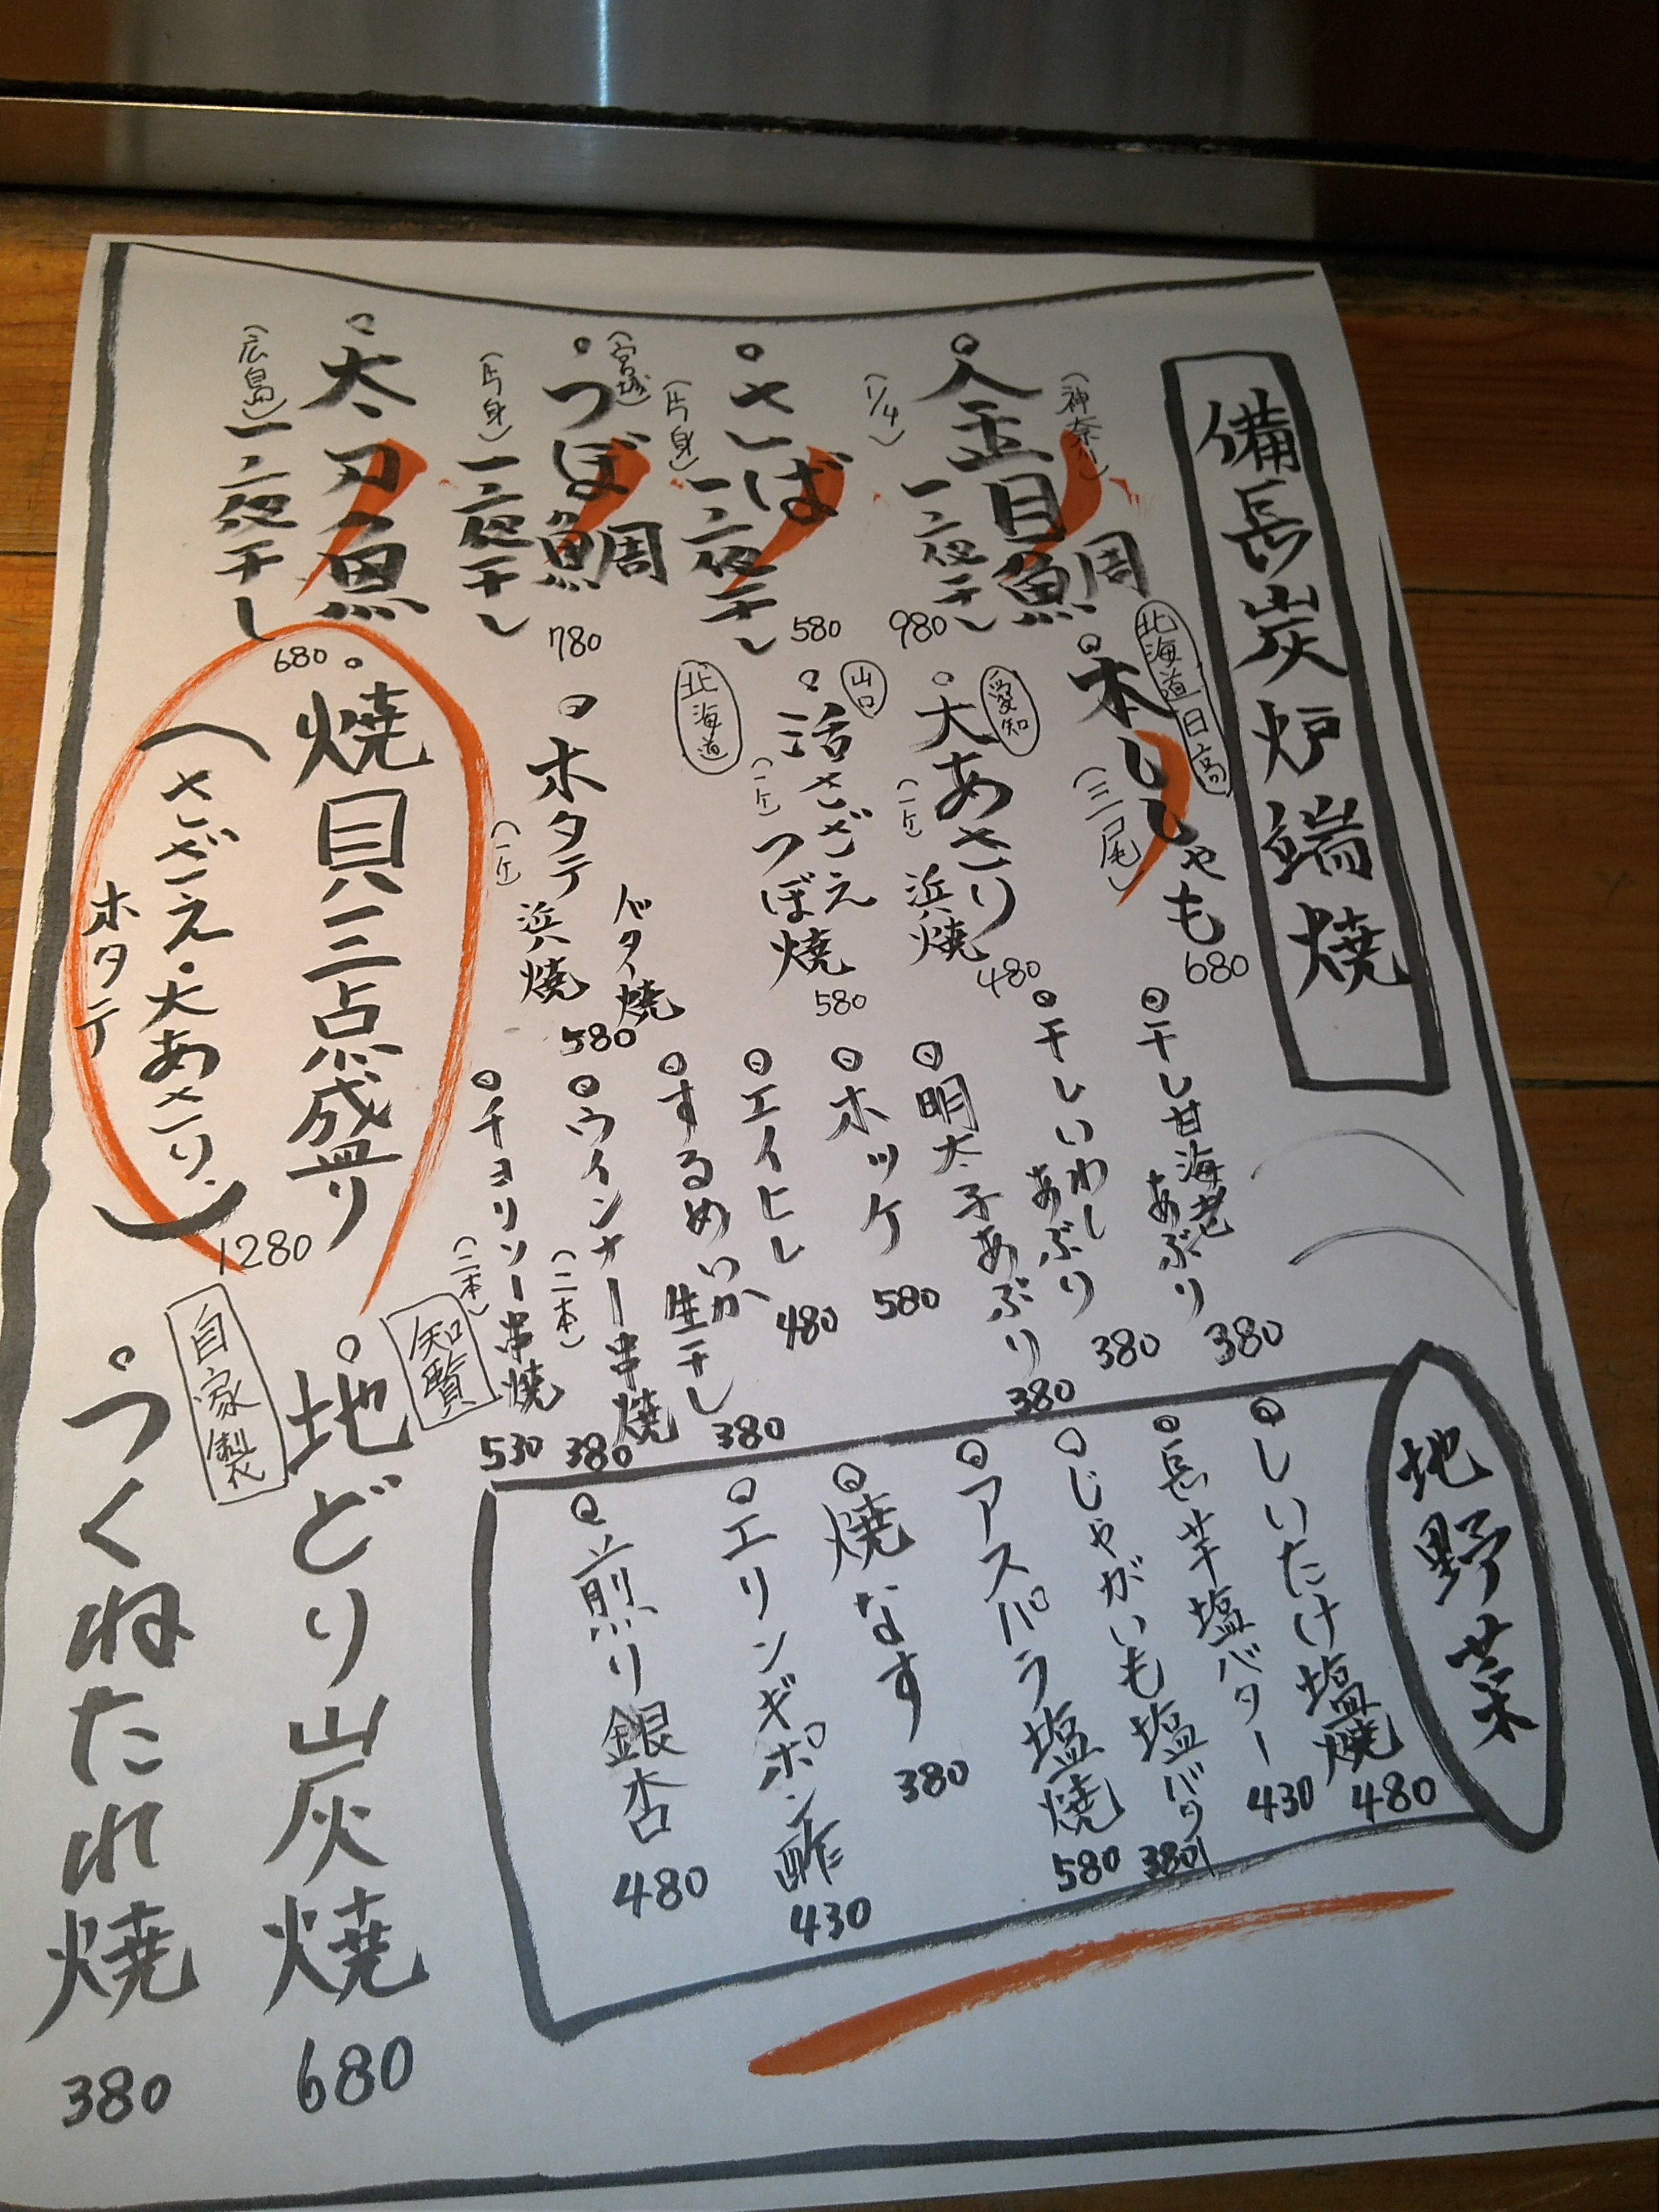 備長炭炉端焼
金目鯛
(神奈川)
一夜干し
(1/4)
980
さば
一夜干し
(片身)
580
つぼ鯛
(宮城)
一夜干し
(片身)
780
太刀魚
一夜干し
(広島)
680
本ししゃも
北海道日高
(三尾)
680
大あさり
愛知
(一ケ)
浜焼
480
活さざえ
山口
(一ケ)
つぼ焼
580
ホタテ
北海道
(一ケ)
バター焼
浜焼
580
焼貝三点盛り
(さざえ・大あさり、
ホタテ)
1280
干し甘海老
あぶり
380
干しいわし
あぶり
380
明太子あぶり
380
ホッケ
580
エイヒレ
480
するめいか
生干し
380
ウインナー串焼
(二本)
380
チョリソー串焼
(二本)
530
知覧
地どり炭焼
680
自家製
つくねたれ焼
380
地野菜
しいたけ塩焼
480
長芋塩バター
430
じゃがいも塩バター
380
アスパラ塩焼
580
焼なす
380
エリンギポン酢
430
煎り銀杏
480